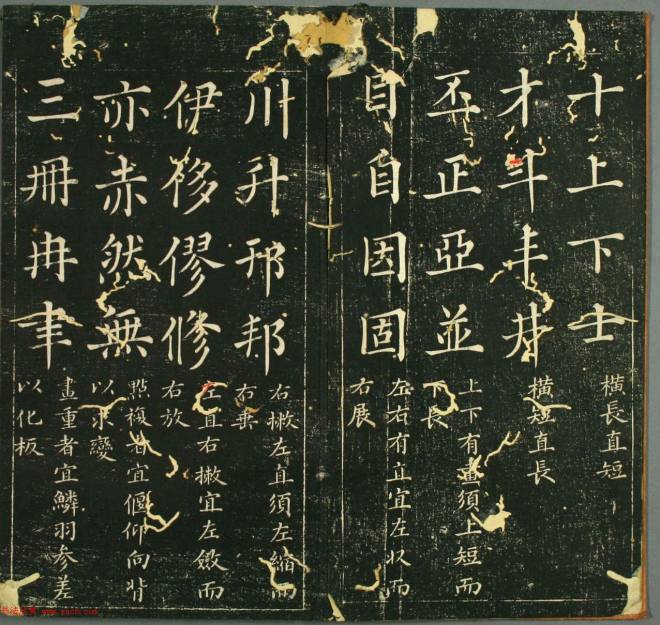 十上下士
橫長直短
才斗丰井
橫短直長
丕正亞並
上下有畫須上短而
下長
目自因固
左右有直宜左收而
右展
川升邗邦
右撇左直須左縮而
右垂
伊侈僇修
左直右撇宜左斂而
右放
亦赤然無
點複者宜偃仰向背
以求變
三冊冉聿
畫重者宜鱗羽參差
以化板